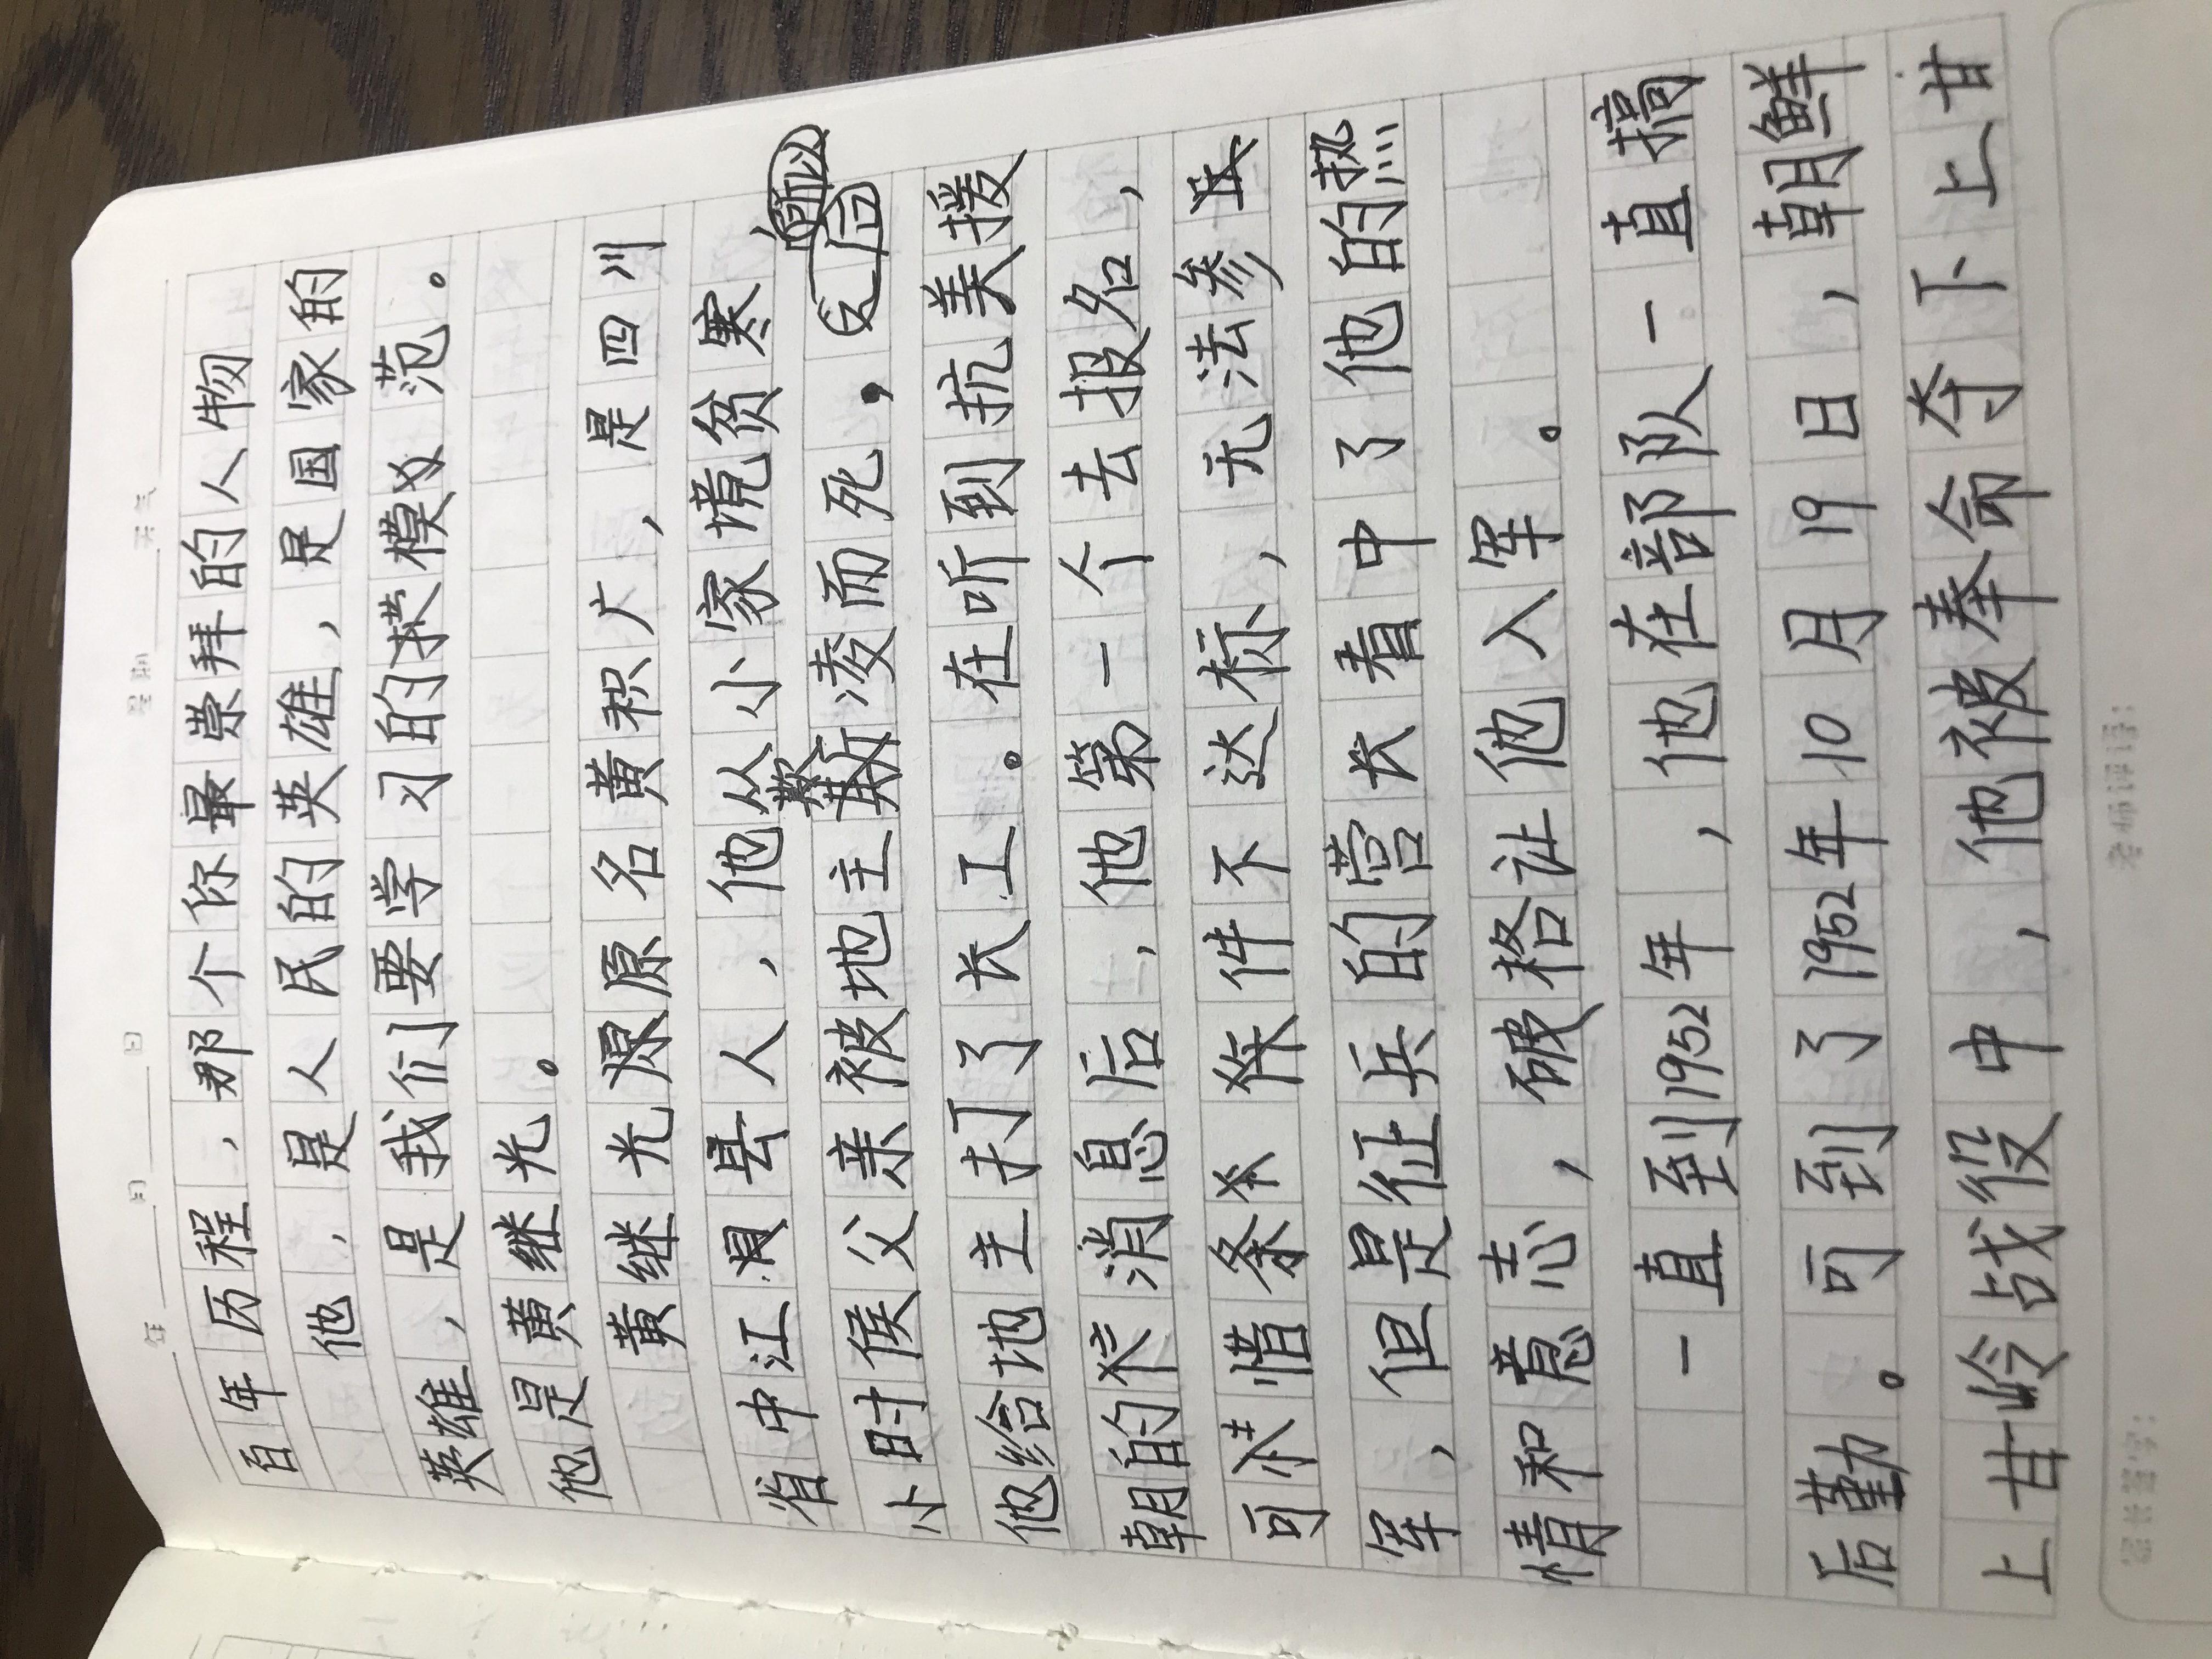 年 月 日 星期 天气
百年历程,那个你最崇拜的人物
他,是人民的英雄,是国家的
英雄,是我们要学习的模范。
他是黄继光。
黄继光原名黄积广,是四川
省中江县人,他从小家境贫寒
小时候父亲被地主欺凌而死,所以
他给地主打了长工。在听到抗美援
朝的消息后,他第一个去报名,
可惜条件不达标,无法参
军,但是征兵的营长看中了他的热
情和意志,破格让他入军。
一直到1952年,他在部队一直搞
后勤。可到了1952年10月19日,朝鲜
上甘岭战役中,他被奉命夺下上甘
家长签字: 老师评语: